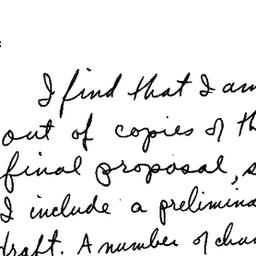 I find that I am
out of copies of th
final proposal, s
I include a prelimina
draft. A number of chan